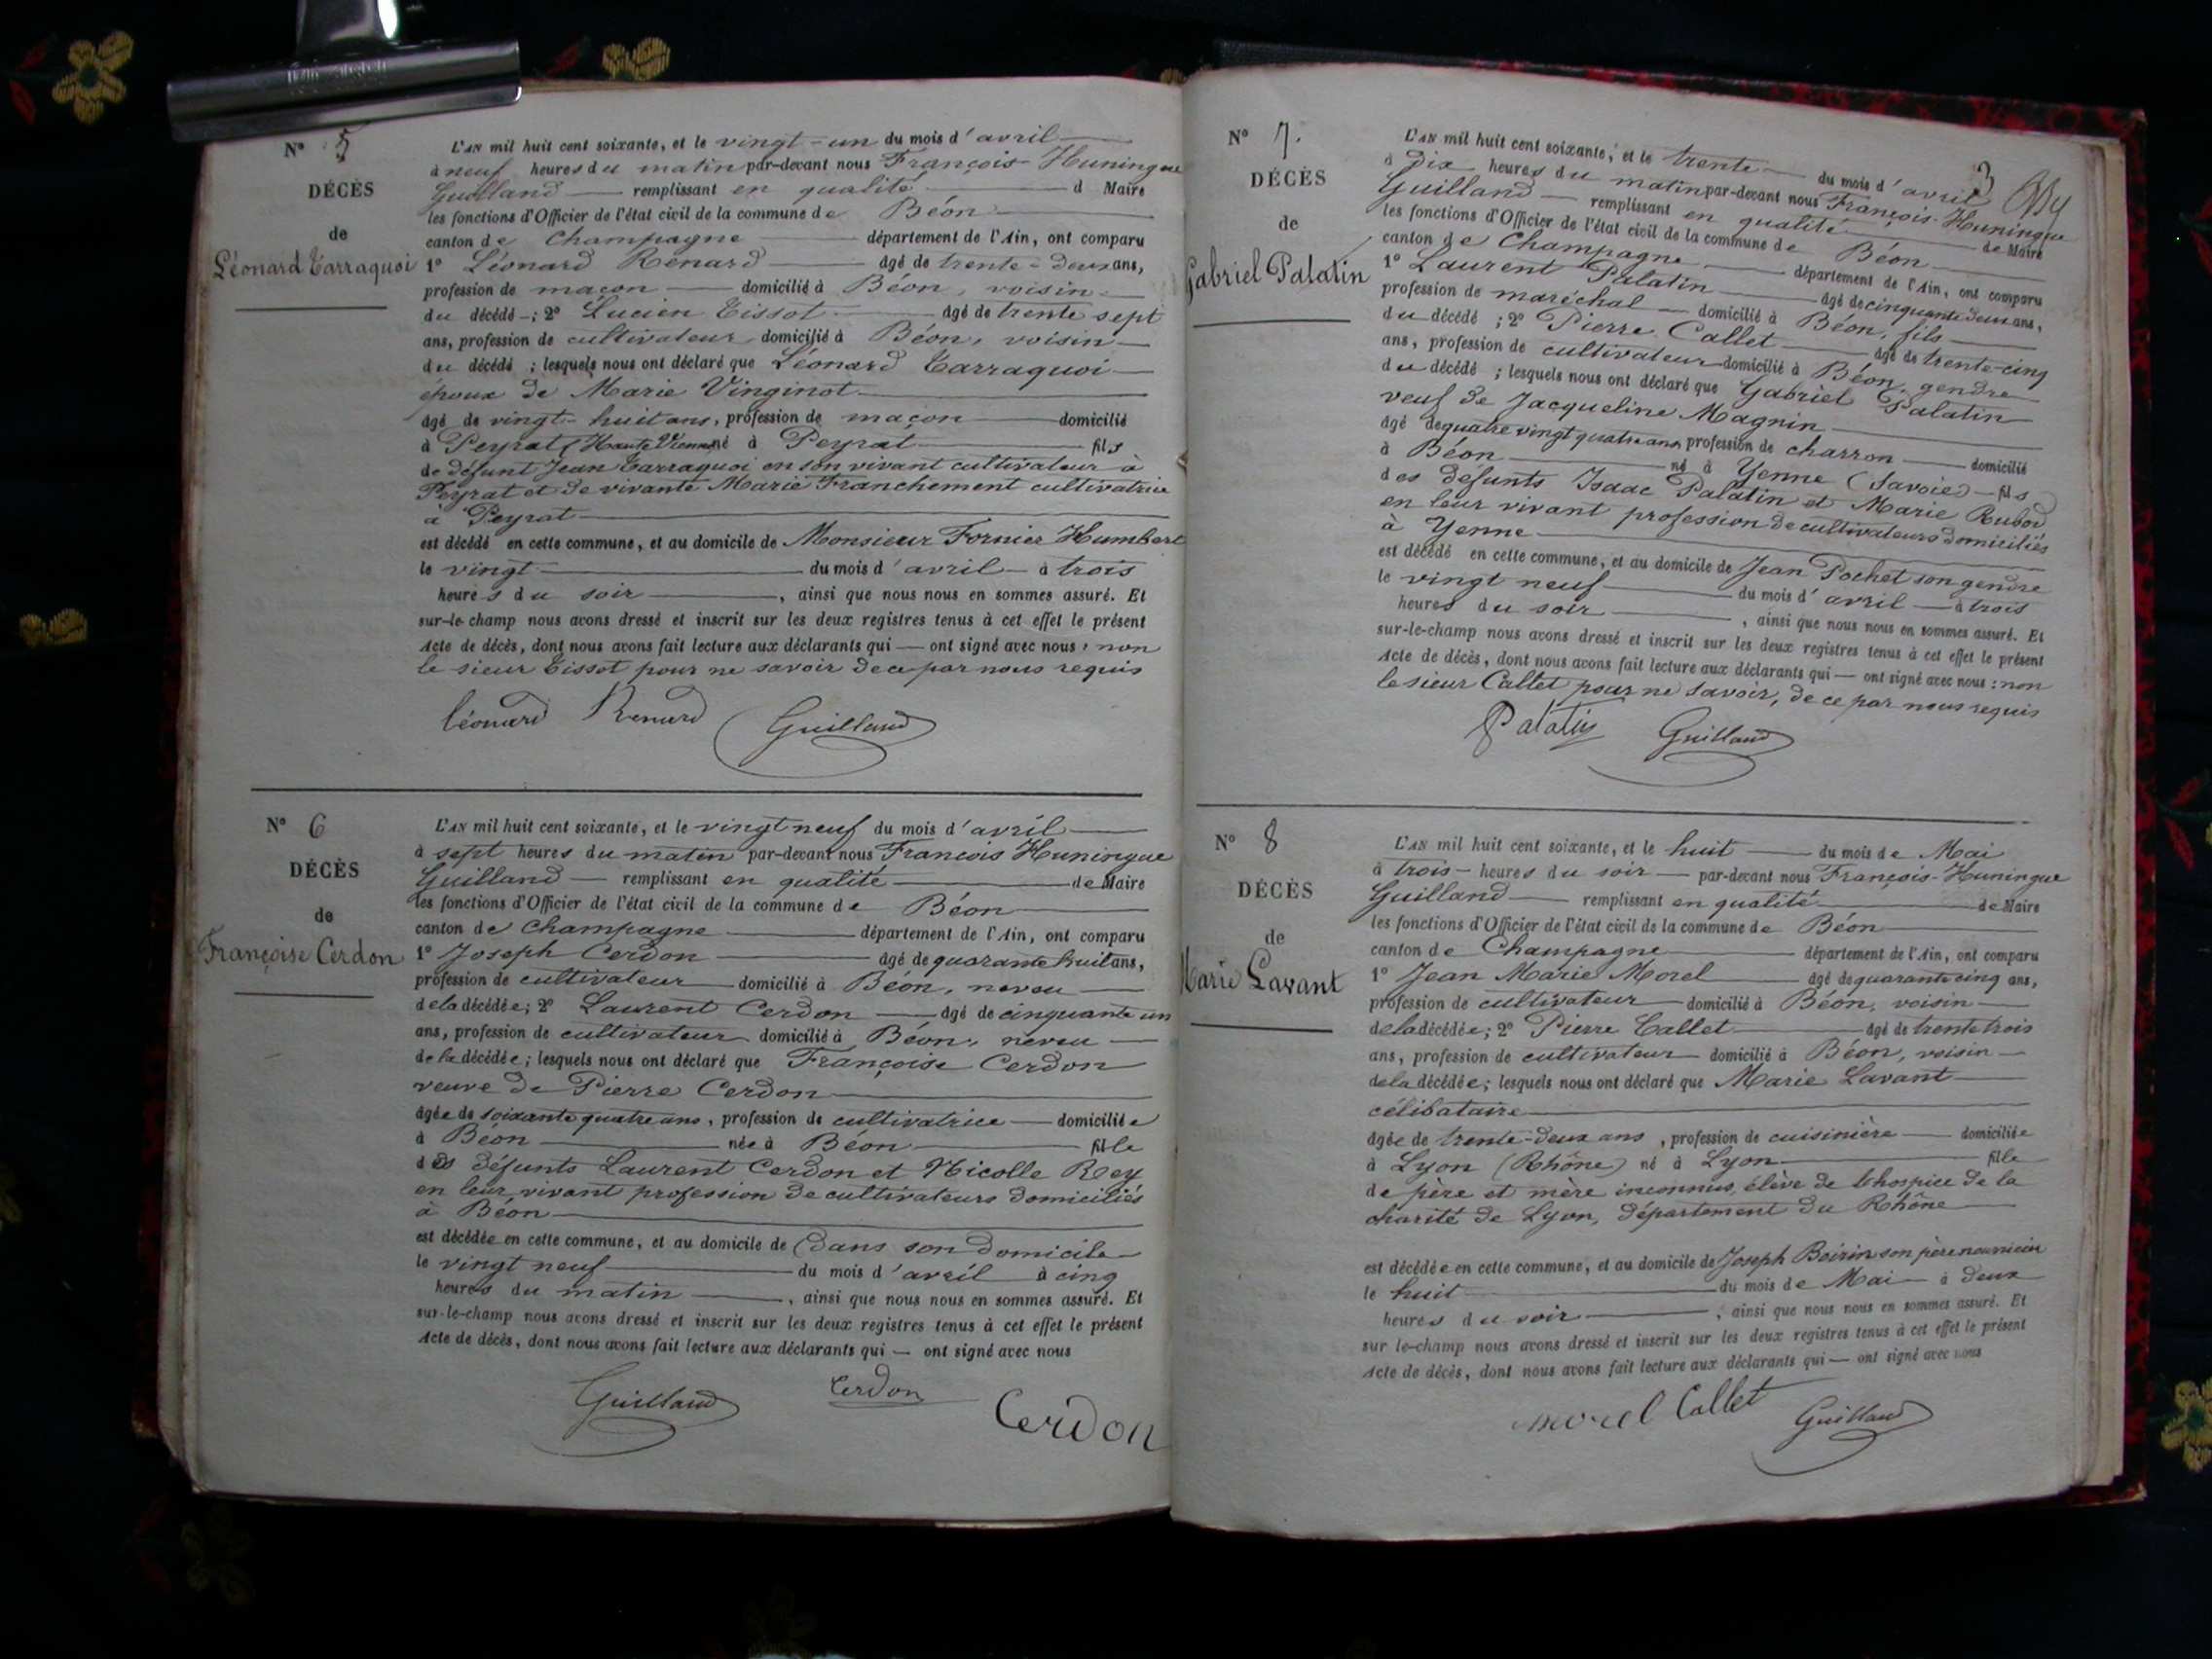 N° 5
DÉCÈS
de
Léonard Tarraquoi
L'AN mil huit cent soixante, et le vingt-un du mois d'avril
à neuf heures du matin par-devant nous François Huningue
Guilland remplissant en qualité d Maire
les fonctions d'Officier de l'état civil de la commune de Béon
canton de Champagne département de l'Ain, ont comparu
1° Léonard Renard âgé de trente-deux ans,
profession de maçon domicilié à Béon, voisin
du décédé ; 2° Lucien Tissot âgé de trente sept
ans, profession de cultivateur domicilié à Béon, voisin
du décédé ; lesquels nous ont déclaré que Léonard Tarraquoi
époux de Marie Vinginot
âgé de vingt-huit ans, profession de maçon domicilié
à Peyrat (Haute Vienne) né à Peyrat fils
de défunt Jean Tarraquoi en son vivant cultivateur à
Peyrat et de vivante Marie Franchement cultivatrice
à Peyrat
est décédé en cette commune, et au domicile de Monsieur Fornier Humbert
le vingt du mois d'avril à trois
heures du soir , ainsi que nous nous en sommes assuré. Et
sur-le-champ nous avons dressé et inscrit sur les deux registres tenus à cet effet le présent
Acte de décès, dont nous avons fait lecture aux déclarants qui — ont signé avec nous, non
le sieur Tissot pour ne savoir de ce par nous requis
Léonard Renard Guilland
N° 6
DÉCÈS
de
Françoise Cerdon
L'AN mil huit cent soixante, et le vingt neuf du mois d'avril
à sept heures du matin par-devant nous François Huningue
Guilland remplissant en qualité de Maire
les fonctions d'Officier de l'état civil de la commune de Béon
canton de Champagne département de l'Ain, ont comparu
1° Joseph Cerdon âgé de quarante huit ans,
profession de cultivateur domicilié à Béon, neveu
de la décédée ; 2° Laurent Cerdon âgé de cinquante un
ans, profession de cultivateur domicilié à Béon, neveu
de la décédée ; lesquels nous ont déclaré que Françoise Cerdon
veuve de Pierre Cerdon
âgée de soixante quatre ans, profession de cultivatrice domiciliée
à Béon née à Béon fille
des défunts Laurent Cerdon et Nicolle Rey
en leur vivant profession de cultivateurs domiciliés
à Béon
est décédée en cette commune, et au domicile de (dans son domicile
le vingt neuf du mois d'avril à cinq
heures du matin , ainsi que nous nous en sommes assuré. Et
sur-le-champ nous avons dressé et inscrit sur les deux registres tenus à cet effet le présent
Acte de décès, dont nous avons fait lecture aux déclarants qui — ont signé avec nous
Guilland Cerdon Cerdon
3
N° 7.
DÉCÈS
de
Gabriel Palatin
L'AN mil huit cent soixante, et le trente du mois d'avril
à dix heures du matin par-devant nous François-Huningue
Guilland remplissant en qualité de Maire
les fonctions d'Officier de l'état civil de la commune de Béon
canton de Champagne département de l'Ain, ont comparu
1° Laurent Palatin âgé de cinquante deux ans,
profession de maréchal domicilié à Béon, fils
du décédé ; 2° Pierre Callet âgé de trente-cinq
ans, profession de cultivateur domicilié à Béon, gendre
du décédé ; lesquels nous ont déclaré que Gabriel Palatin
veuf de Jacqueline Magnin
âgé de quatre vingt quatre ans, profession de charron domicilié
à Béon né à Yenne (Savoie) fils
des défunts Isaac Palatin et Marie Rubod
en leur vivant profession de cultivateurs domiciliés
à Yenne
est décédé en cette commune, et au domicile de Jean Pochet son gendre
le vingt neuf du mois d'avril à trois
heures du soir , ainsi que nous nous en sommes assuré. Et
sur-le-champ nous avons dressé et inscrit sur les deux registres tenus à cet effet le présent
Acte de décès, dont nous avons fait lecture aux déclarants qui — ont signé avec nous : non
le sieur Callet pour ne savoir, de ce par nous requis
Palatin Guilland
N° 8
DÉCÈS
de
Marie Lavant
L'AN mil huit cent soixante, et le huit du mois de Mai
à trois heures du soir par-devant nous François-Huningue
Guilland remplissant en qualité de Maire
les fonctions d'Officier de l'état civil de la commune de Béon
canton de Champagne département de l'Ain, ont comparu
1° Jean Marie Morel âgé de quarante cinq ans,
profession de cultivateur domicilié à Béon, voisin
de la décédée ; 2° Pierre Callet âgé de trente trois
ans, profession de cultivateur domicilié à Béon, voisin
de la décédée ; lesquels nous ont déclaré que Marie Lavant
célibataire
âgée de trente-deux ans, profession de cuisinière domiciliée
à Lyon (Rhône) né à Lyon fille
de père et mère inconnus, élève de l'hospice de la
charité de Lyon, département du Rhône
est décédée en cette commune, et au domicile de Joseph Boirin son père nourricier
le huit du mois de Mai à deux
heures du soir , ainsi que nous nous en sommes assuré. Et
sur le-champ nous avons dressé et inscrit sur les deux registres tenus à cet effet le présent
Acte de décès, dont nous avons fait lecture aux déclarants qui — ont signé avec nous
morel Callet Guilland